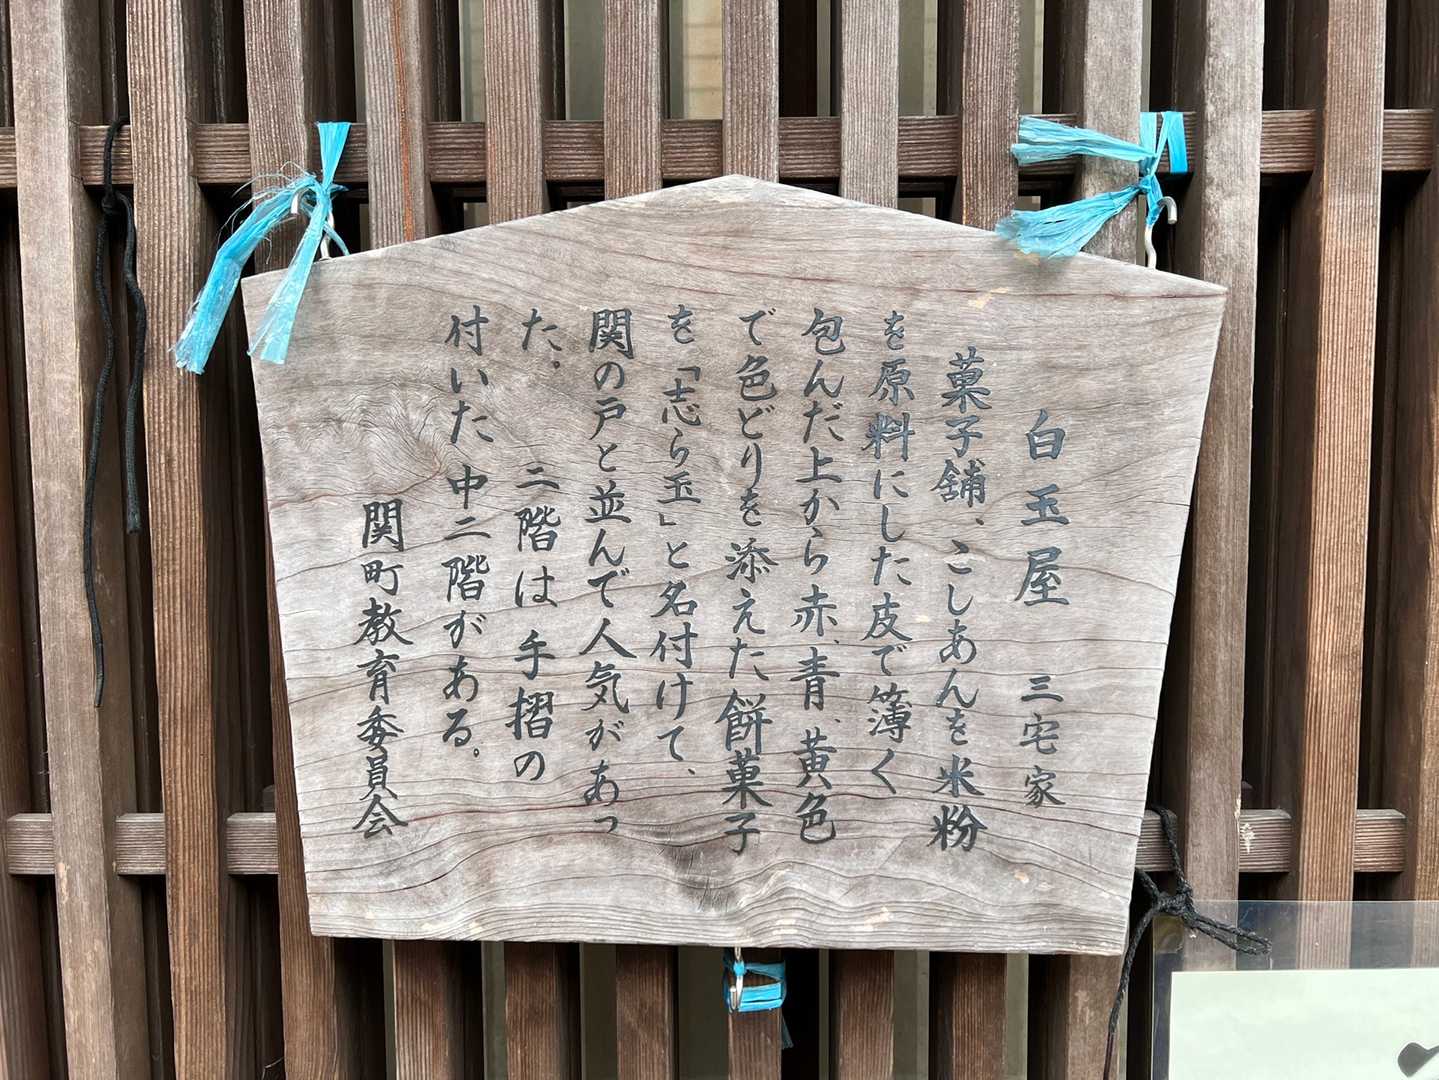 白玉屋 三宅家
菓子舗、こしあんを米粉
を原料にした皮で簿く
包んだ上から赤、青、黄色
で色どりを添えた餅菓子
を「志ら玉」と名付けて、
関の戸と並んで人気があっ
た。 二階は手摺の
付いた中二階がある。
関町教育委員会